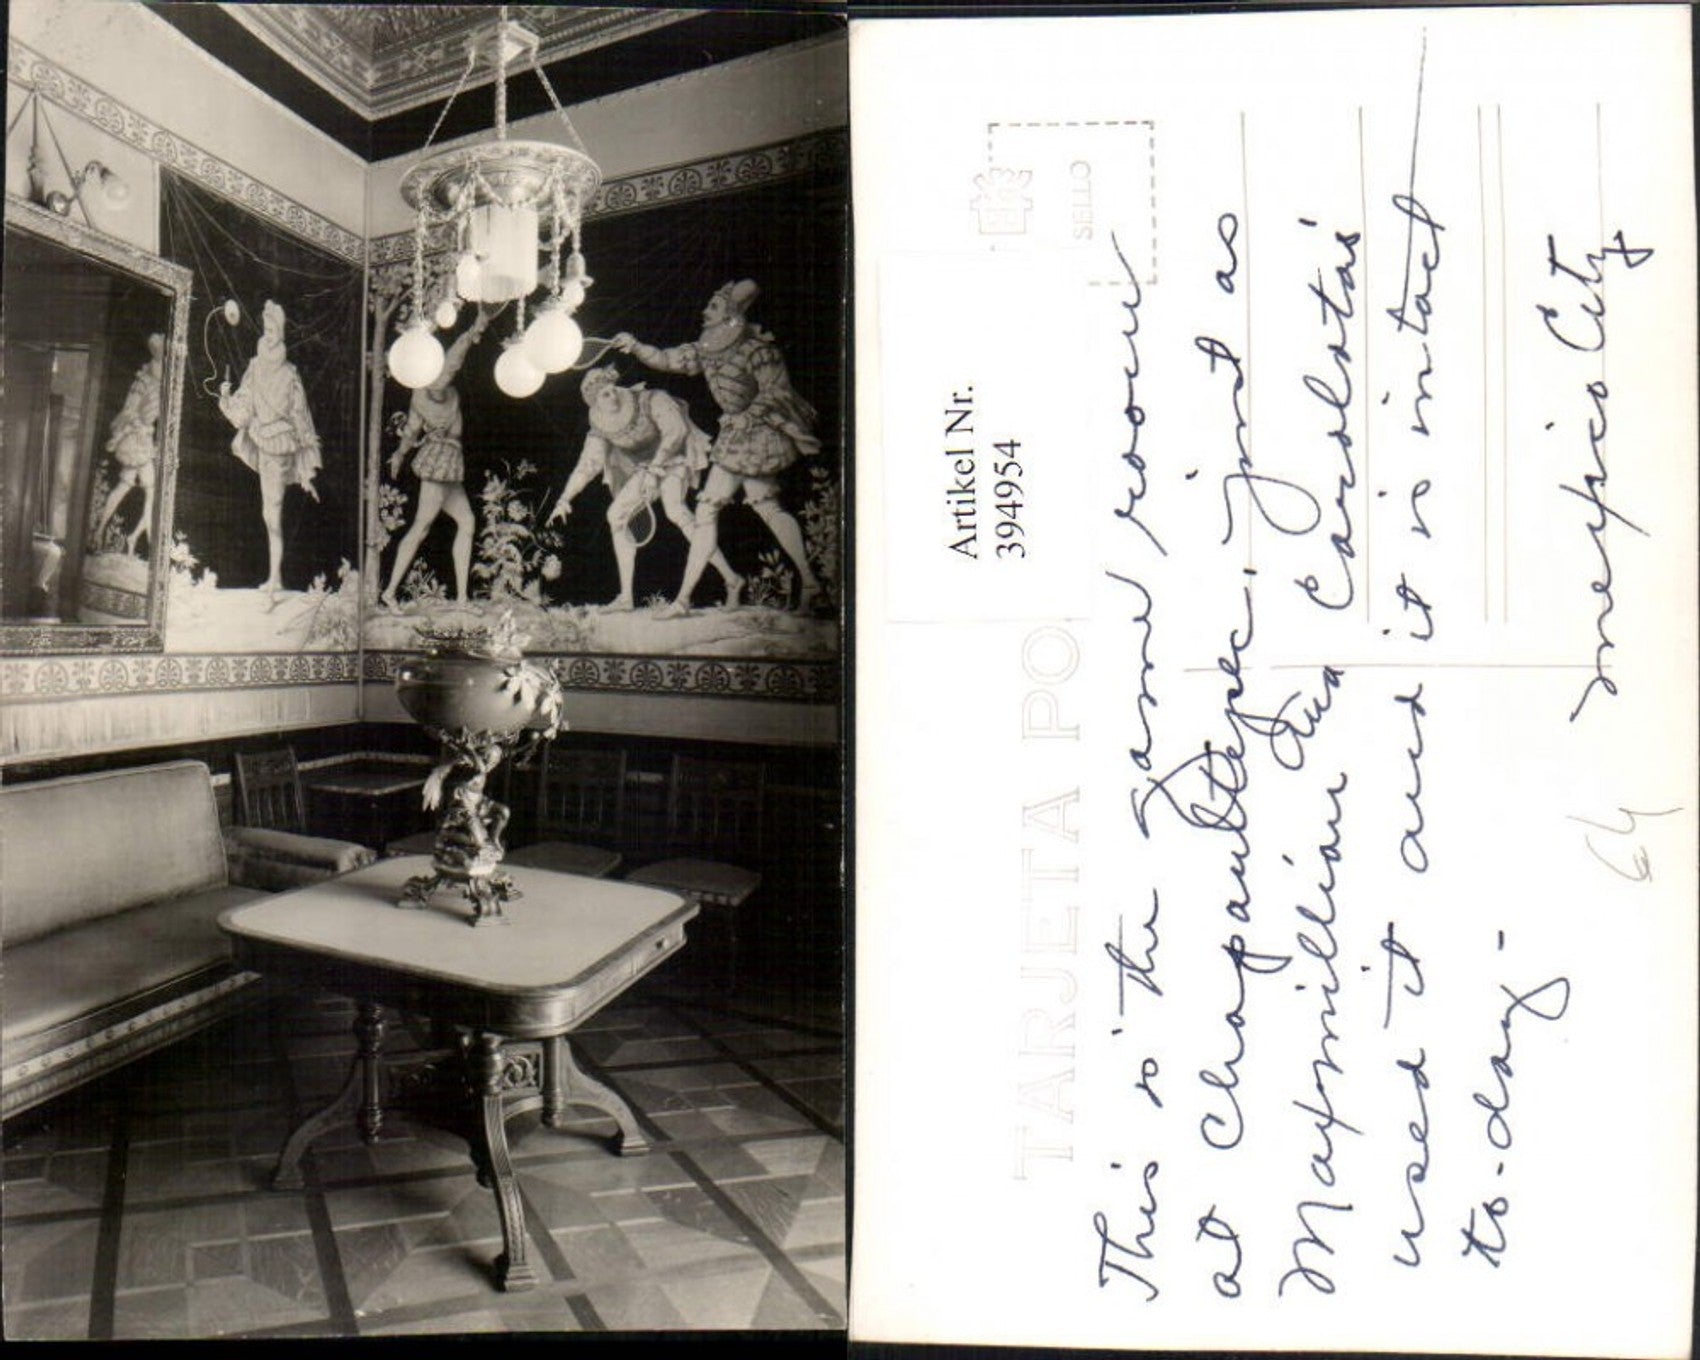 TARJETA PO
Artikel Nr.
394954
SELLO
This is the game room
at Chapaultepec. just as
Maxmillian and Carolotas
used it and it is intact
to-day-
Mexico City
64